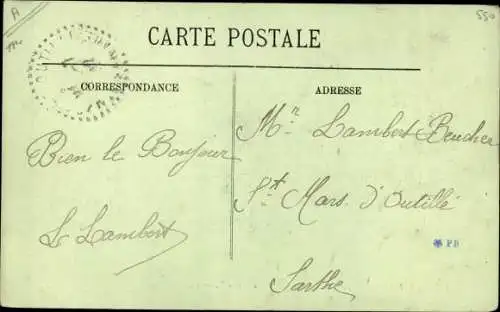 CARTE POSTALE
CORRESPONDANCE
ADRESSE
Bien le Bonjour
L Lambert
Mr. Lambert Beucher
St Mars d'Outillé
Sarthe
PD
550
A